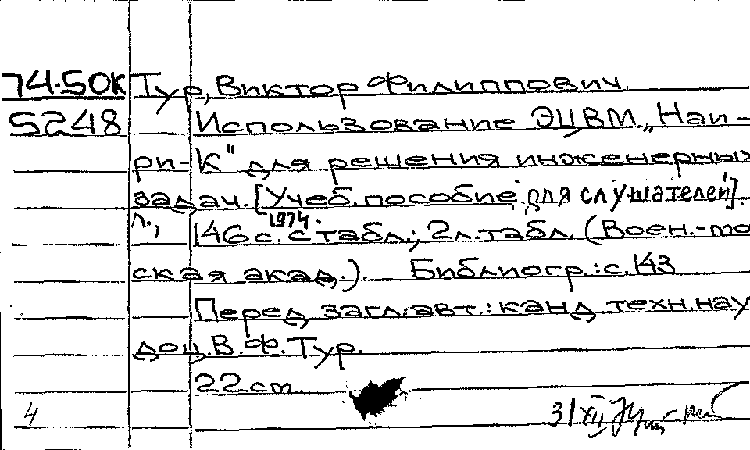 74-50К Тур, Виктор Филиппович.
5248 Использование ЭЦВМ „Наи-
ри-К" для решения инженерных
задач. [Учеб. пособие для слушателей].
Л., 1974.
146 с. с табл.; 2 л. табл. (Воен.-мо
ская акад.). Библиогр.: с. 143
Перед загл. авт.: канд. техн. нау
доц. В. Ф. Тур.
22 см
4 31 XII